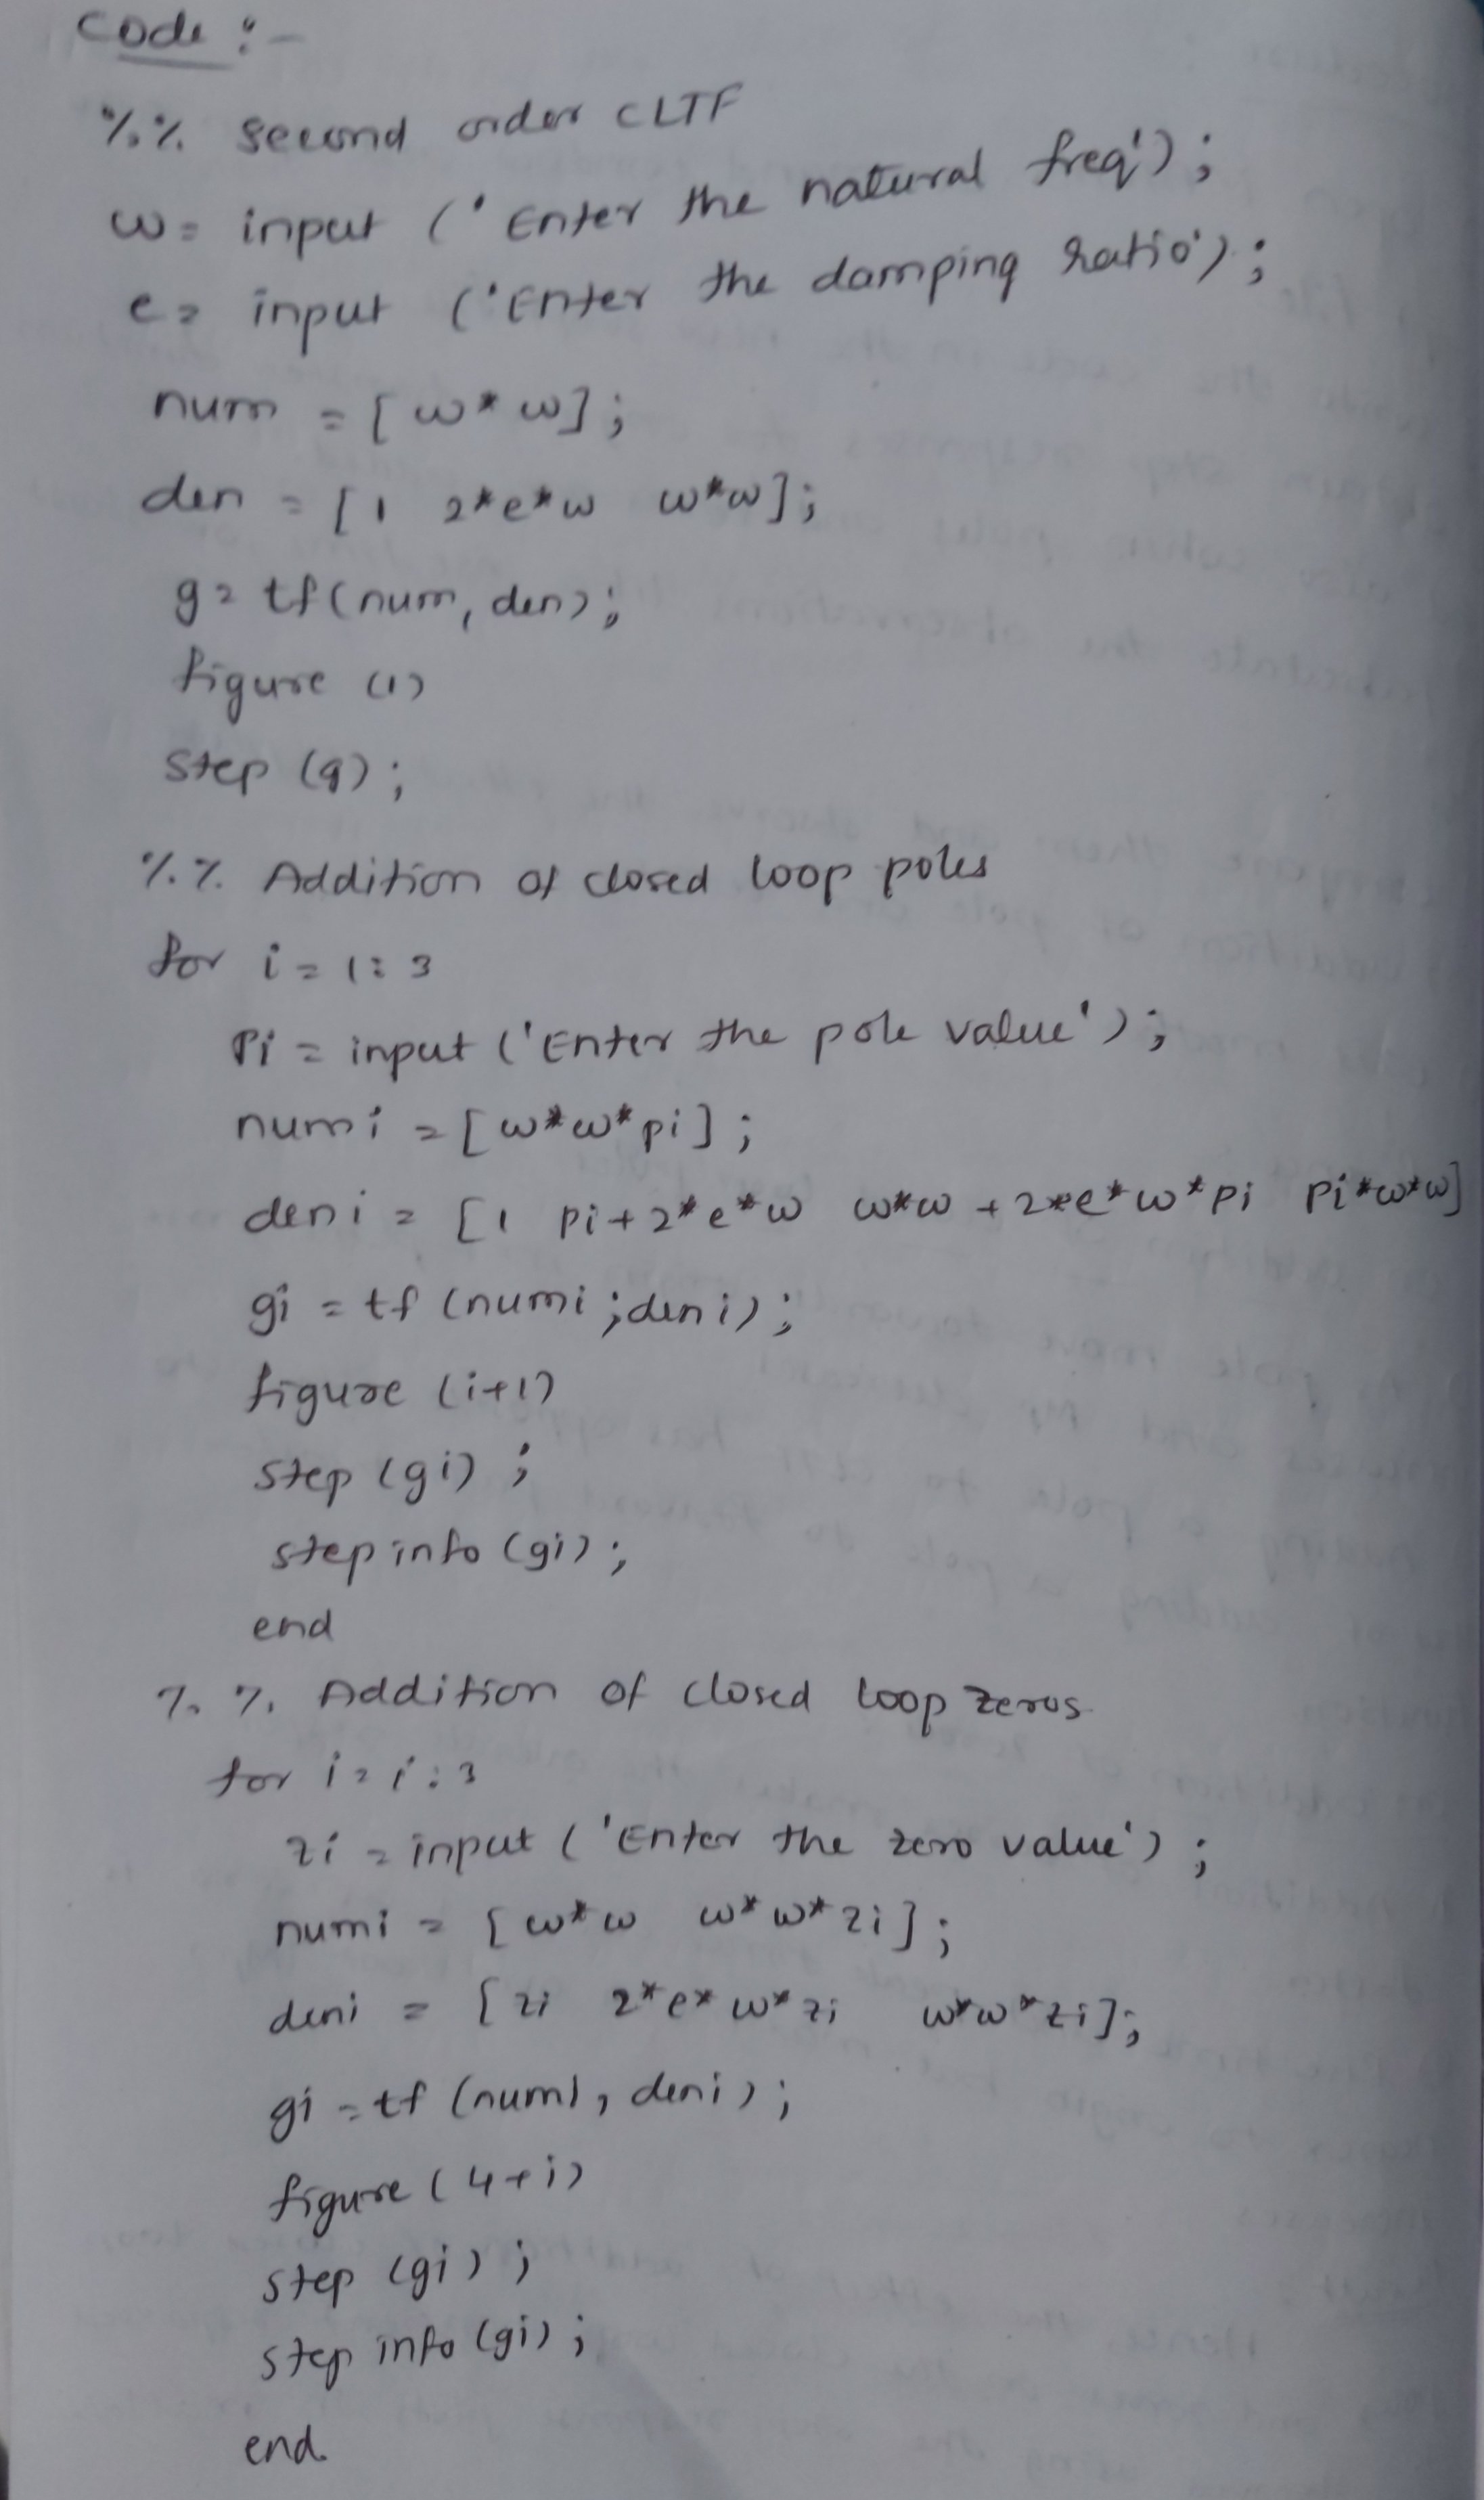 Code :-
%% Second order CLTF
w= input ('Enter the natural freq');
e= input ('Enter the damping ratio');
num = [w*w];
den = [1 2*e*w w*w];
g= tf(num, den);
figure (1)
step (g);
%% Addition of closed loop poles
for i=1:3
Pi = input ('Enter the pole value');
numi = [w*w*pi];
deni = [1 pi+2*e*w w*w+2*e*w*pi pi*w*w]
gi = tf (numi;deni);
figure (i+1)
step (gi);
stepinfo (gi);
end
%% Addition of closed loop zeros
for i=i:3
zi = input ('Enter the zero value');
numi = [w*w w*w*zi];
deni = [zi 2*e*w*zi w*w*zi];
gi = tf (numi, deni);
figure (4+i)
step (gi);
step info (gi);
end.